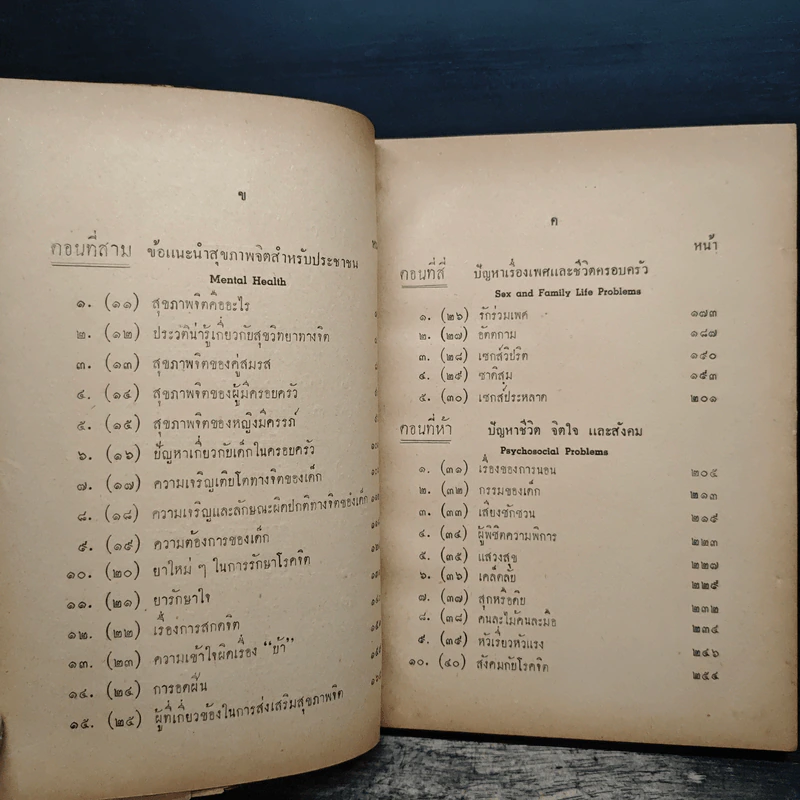 ข
ตอนที่สาม ข้อแนะนำสุขภาพจิตสำหรับประชาชน
Mental Health
๑. (๑๑) สุขภาพจิตคืออะไร
๒. (๑๒) ประวัติน่ารู้เกี่ยวกับสุขวิทยาทางจิต
๓. (๑๓) สุขภาพจิตของคู่สมรส
๔. (๑๔) สุขภาพจิตของผู้มีครอบครัว
๕. (๑๕) สุขภาพจิตของหญิงมีครรภ์
๖. (๑๖) ปัญหาเกี่ยวกับเด็กในครอบครัว
๗. (๑๗) ความเจริญเติบโตทางจิตของเด็ก
๘. (๑๘) ความเจริญและลักษณะผิดปกติทางจิตของเด็ก
๙. (๑๙) ความต้องการของเด็ก
๑๐. (๒๐) ยาใหม่ ๆ ในการรักษาโรคจิต
๑๑. (๒๑) ยารักษาใจ
๑๒. (๒๒) เรื่องการสกดจิต
๑๓. (๒๓) ความเข้าใจผิดเรื่อง "ย้ำ"
๑๔. (๒๔) การอดฝิ่น
๑๕. (๒๕) ผู้ที่เกี่ยวข้องในการส่งเสริมสุขภาพจิต
ค
หน้า
ตอนที่สี่ ปัญหาเรื่องเพศและชีวิตครอบครัว
Sex and Family Life Problems
๑. (๒๖) รักร่วมเพศ ๑๗๓
๒. (๒๗) อัตตกาม ๑๘๗
๓. (๒๘) เซกส์วิปริต ๑๙๐
๔. (๒๙) ซาดิสม ๑๙๓
๕. (๓๐) เซกส์ประหลาด ๒๐๑
ตอนที่ห้า ปัญหาชีวิต จิตใจ และสังคม
Psychosocial Problems
๑. (๓๑) เรื่องของการนอน ๒๐๕
๒. (๓๒) กรรมของเด็ก ๒๑๓
๓. (๓๓) เสียงซักซวน ๒๑๙
๔. (๓๔) ผู้พิชิตความพิการ ๒๒๓
๕. (๓๕) แสวงสุข ๒๒๗
๖. (๓๖) เคล็คลัย ๒๒๙
๗. (๓๗) สุกหรือดิบ ๒๓๒
๘. (๓๘) คนละไม้คนละมือ ๒๓๔
๙. (๓๙) หัวเรี่ยวหัวแรง ๒๔๖
๑๐. (๔๐) สังคมกับโรคจิต ๒๕๔